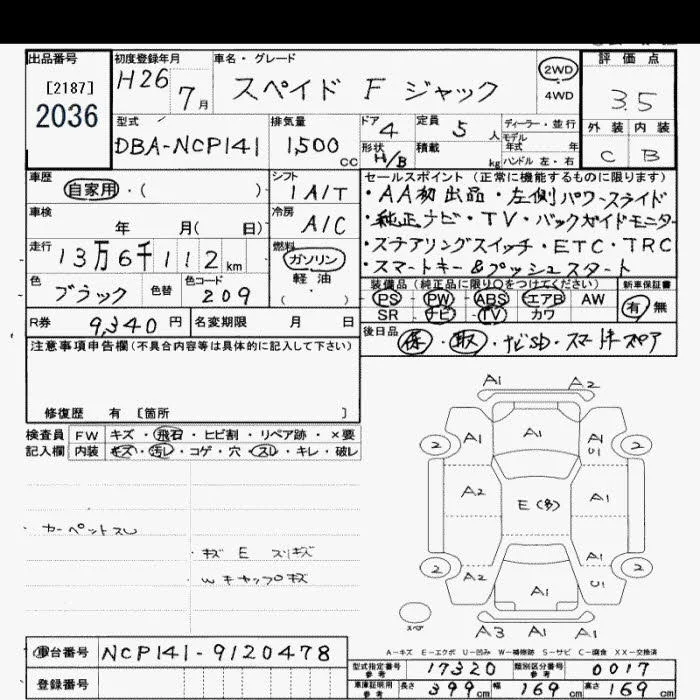 出品番号
[2187]
2036
初度登録年月
H26 7月
車名・グレード
スペイド F ジャック
2WD
4WD
評価点
3.5
外装 内装
C B
型式
DBA-NCP141
排気量
1,500 cc
ドア 4
定員 5 人
形状 H/B
積載 kg
ディーラー・並行
モデル年式 年
ハンドル 左・右
車歴
自家用・( )
シフト
1 A/T
車検
年 月( 日)
冷房
A/C
走行
13万6千112 km
燃料
ガソリン
軽油
( )
色
ブラック
色替
色コード
209
R券 9,340 円
名変期限 月 日
セールスポイント (正常に機能するものに限ります)
・AA初出品・左側パワースライド
・純正ナビ・TV・バックガイドモニター
・ステアリングスイッチ・ETC・TRC
・スマートキー&プッシュスタート
装備品 (純正品に限り○をつけてください)
PS PW ABS エアB AW
SR ナビ TV カワ
新車保証書
有 無
後日品
保・取・ナビSD・スマートキースペア
注意事項申告欄(不具合内容等は具体的に記入して下さい)
修復歴 有 [箇所 ]
検査員記入欄
FW キズ・飛石・ヒビ割・リペア跡・×要
内装 キズ・汚レ・コゲ・穴・スレ・キレ・破レ
・カーペットスレ
・キズ E スリキズ
・wキャップキズ
A1 A2
2 A1 A1 A1 U1 2
A2 E(多) A1
2 A2 A1 A1 U1 2
スペア
A3 A1 A1
A-キズ E-エクボ U-凹み W-補修跡 S-サビ C-腐食 XX-交換済
車台番号
NCP141-9120478
登録番号
型式指定番号参考 17320
類別区分番号参考 0017
車庫証明用参考 長さ 399 cm 幅 169 cm 高さ 169 cm